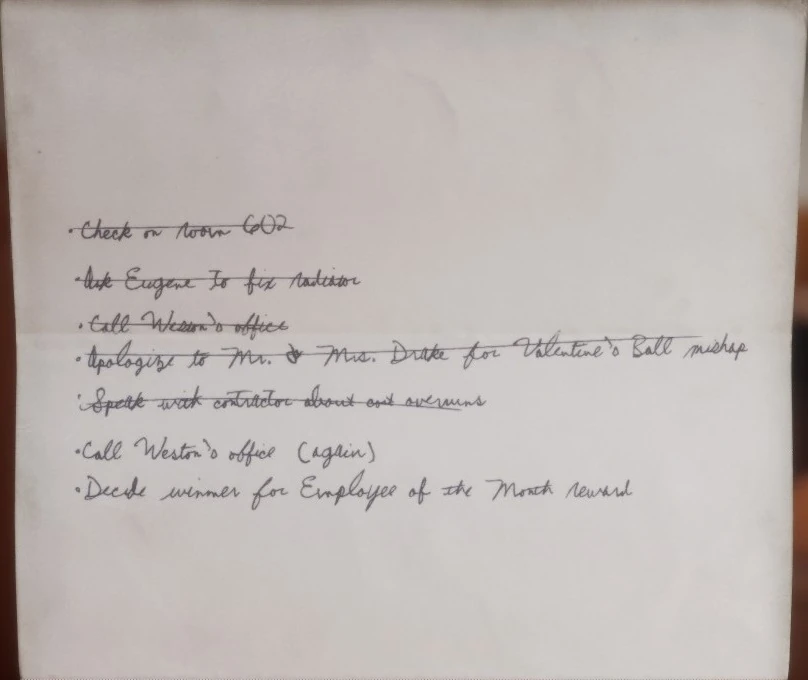 · Check on room 602
· Ask Eugene to fix radiator
· Call Weston's office
· Apologize to Mr. & Mrs. Drake for Valentine's Ball mishap
· Speak with contractor about cost overruns
· Call Weston's office (again)
· Decide winner for Employee of the Month reward